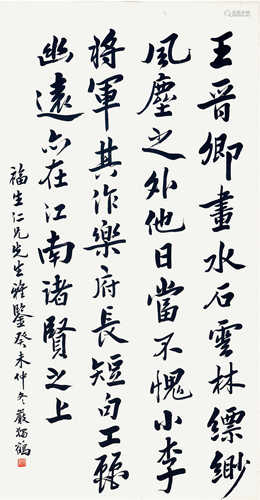 王晉卿畫水石雲林縹緲
風塵之外他日當不愧小李
將軍其作樂府長短句工
幽遠亦在江南諸賢之上
福生仁兄先生雅鑒癸未仲冬嚴獨鶴